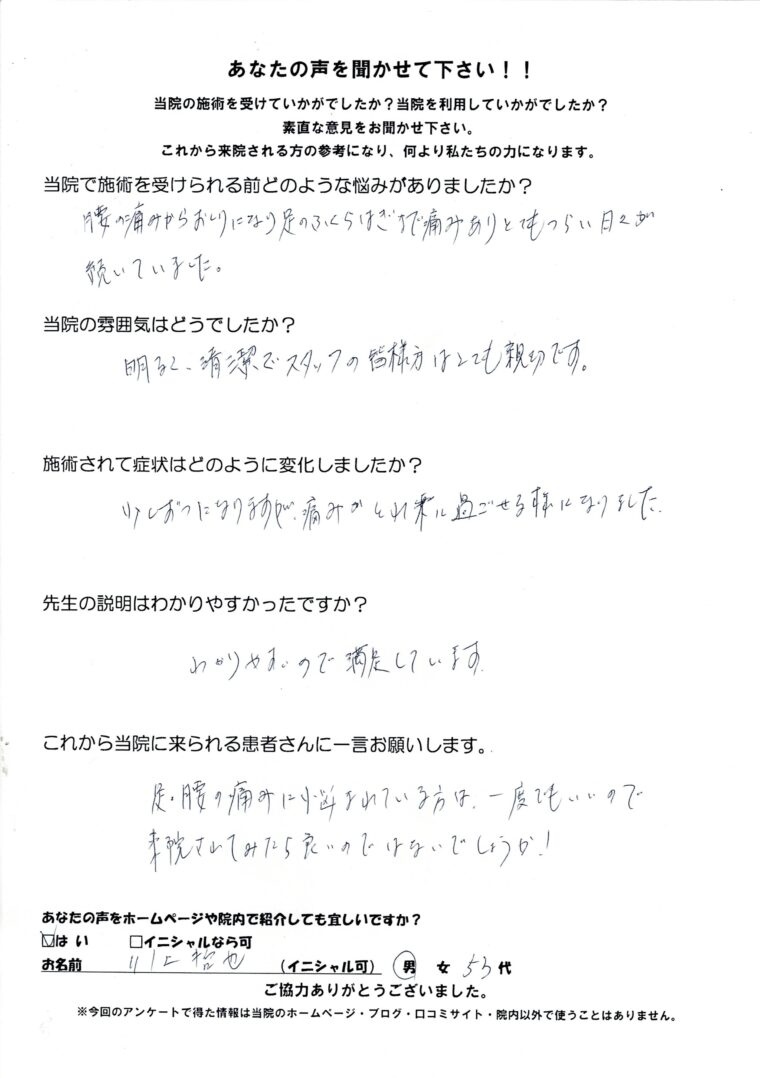 あなたの声を聞かせて下さい！！
当院の施術を受けていかがでしたか？当院を利用していかがでしたか？
素直な意見をお聞かせ下さい。
これから来院される方の参考になり、何より私たちの力になります。
当院で施術を受けられる前どのような悩みがありましたか？
腰の痛みからおしりになり足のふくらはぎまで痛みありとてもつらい日々が
続いていました。
当院の雰囲気はどうでしたか？
明るく、清潔でスタッフの皆様方はとても親切です。
施術されて症状はどのように変化しましたか？
少しずつになりますが、痛みがとれ楽に過ごせる様になりました。
先生の説明はわかりやすかったですか？
わかりやすいので満足しています。
これから当院に来られる患者さんに一言お願いします。
足・腰の痛みに悩まれている方は、一度でもいいので
来院されてみたら良いのではないでしょうか！
あなたの声をホームページや院内で紹介しても宜しいですか？
☑はい □イニシャルなら可
お名前 川上哲也 （イニシャル可） 男 女 53代
ご協力ありがとうございました。
※今回のアンケートで得た情報は当院のホームページ・ブログ・口コミサイト・院内以外で使うことはありません。